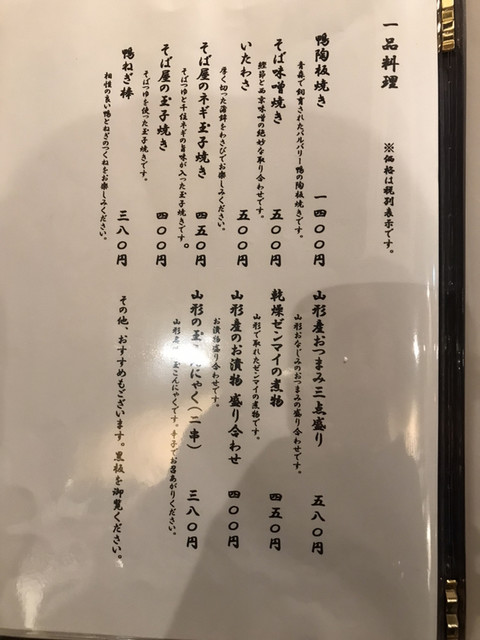 一品料理
※価格は税別表示です。
鴨陶板焼き 一四〇〇円
青森で飼育されたバルバリー鴨の陶板焼きです。
そば味噌焼き 五〇〇円
鰹節と西京味噌の絶妙な取り合わせです。
いたわさ 五〇〇円
厚く切った蒲鉾をわさびでお楽しみください。
そば屋のネギ玉子焼き 四五〇円
そばつゆと千住ネギの旨味が入った玉子焼きです。
そば屋の玉子焼き 四〇〇円
そばつゆを使った玉子焼きです。
鴨ねぎ棒 三八〇円
相性の良い鴨とねぎのつくねをお楽しみください。
山形産おつまみ三点盛り 五八〇円
山形おなじみのおつまみの盛り合わせです。
乾燥ゼンマイの煮物 四五〇円
山形で取れたゼンマイの煮物です。
山形産のお漬物 盛り合わせ 四〇〇円
お漬物盛り合わせです。
山形の玉こんにゃく(二串) 三八〇円
山形名 玉こんにゃくです。辛子でお召あがりください。
その他、おすすめもございます。黒板を御覧ください。